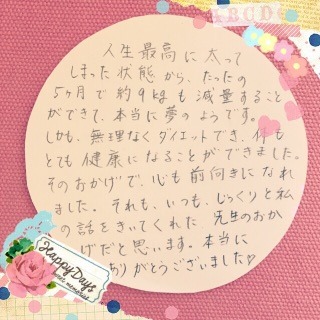 ABCD
人生最高に太って
しまった状態から、たったの
5ヶ月で約9kgも減量すること
ができて、本当に夢のようです。
しかも、無理なくダイエットでき、体も
とても健康になることができました。
そのおかげで、心も前向きになれ
ました。それも、いつも、じっくりと私
の話をきいてくれた 先生のおか
げだと思います。本当に
ありがとうございました♡
Happy Days
sweet memories